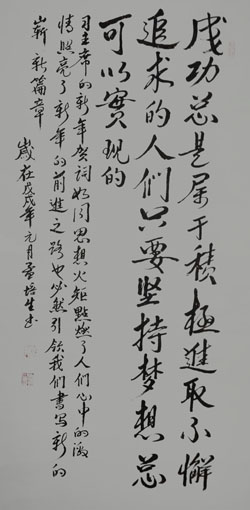 成功总是属于积极進取不懈
追求的人们只要坚持梦想总
可以實现的
习主席的新年贺词如同思想火炬點燃了人们心中的激
情照亮了新年的前進之路也必然引领我们書写新的
嶄新篇章
歲在戊戌年元月孟培生书